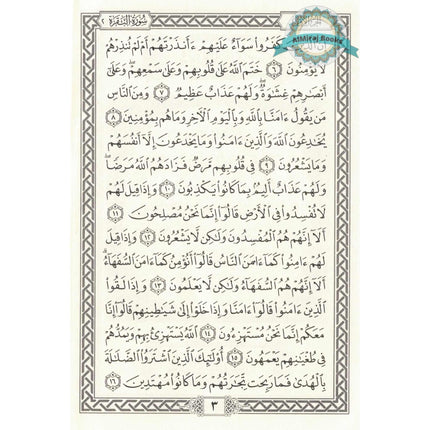 سُورَةُ البَقَرَةِ ٢
AlMiraj Books
كَفَرُوا۟ سَوَآءٌ عَلَيْهِمْ ءَأَنذَرْتَهُمْ أَمْ لَمْ تُنذِرْهُمْ
لَا يُؤْمِنُونَ ٦ خَتَمَ ٱللَّهُ عَلَىٰ قُلُوبِهِمْ وَعَلَىٰ سَمْعِهِمْ ۖ وَعَلَىٰٓ
أَبْصَـٰرِهِمْ غِشَـٰوَةٌ ۖ وَلَهُمْ عَذَابٌ عَظِيمٌ ٧ وَمِنَ ٱلنَّاسِ
مَن يَقُولُ ءَامَنَّا بِٱللَّهِ وَبِٱلْيَوْمِ ٱلْـَٔاخِرِ وَمَا هُم بِمُؤْمِنِينَ ٨
يُخَـٰدِعُونَ ٱللَّهَ وَٱلَّذِينَ ءَامَنُوا۟ وَمَا يَخْدَعُونَ إِلَّآ أَنفُسَهُمْ
وَمَا يَشْعُرُونَ ٩ فِى قُلُوبِهِم مَّرَضٌ فَزَادَهُمُ ٱللَّهُ مَرَضًا ۖ
وَلَهُمْ عَذَابٌ أَلِيمٌۢ بِمَا كَانُوا۟ يَكْذِبُونَ ١٠ وَإِذَا قِيلَ لَهُمْ
لَا تُفْسِدُوا۟ فِى ٱلْأَرْضِ قَالُوٓا۟ إِنَّمَا نَحْنُ مُصْلِحُونَ ١١
أَلَآ إِنَّهُمْ هُمُ ٱلْمُفْسِدُونَ وَلَـٰكِن لَّا يَشْعُرُونَ ١٢ وَإِذَا قِيلَ
لَهُمْ ءَامِنُوا۟ كَمَآ ءَامَنَ ٱلنَّاسُ قَالُوٓا۟ أَنُؤْمِنُ كَمَآ ءَامَنَ ٱلسُّفَهَآءُ ۗ
أَلَآ إِنَّهُمْ هُمُ ٱلسُّفَهَآءُ وَلَـٰكِن لَّا يَعْلَمُونَ ١٣ وَإِذَا لَقُوا۟
ٱلَّذِينَ ءَامَنُوا۟ قَالُوٓا۟ ءَامَنَّا وَإِذَا خَلَوْا۟ إِلَىٰ شَيَـٰطِينِهِمْ قَالُوٓا۟ إِنَّا
مَعَكُمْ إِنَّمَا نَحْنُ مُسْتَهْزِءُونَ ١٤ ٱللَّهُ يَسْتَهْزِئُ بِهِمْ وَيَمُدُّهُمْ
فِى طُغْيَـٰنِهِمْ يَعْمَهُونَ ١٥ أُو۟لَـٰٓئِكَ ٱلَّذِينَ ٱشْتَرَوُا۟ ٱلضَّلَـٰلَةَ
بِٱلْهُدَىٰ فَمَا رَبِحَت تِّجَـٰرَتُهُمْ وَمَا كَانُوا۟ مُهْتَدِينَ ١٦
٣